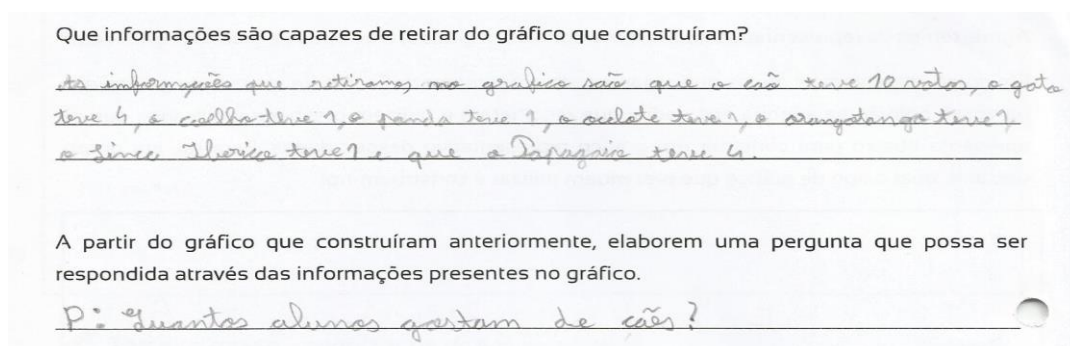 Que informações são capazes de retirar do gráfico que construíram?
As informações que retiramos no grafico são que o cão teve 10 votos, o gato
teve 4, o coelho teve 1, o panda teve 1, o ocelote teve 1, o orangotango teve 1,
o Lince Iberico teve 1 e que o Papagaio teve 4.
A partir do gráfico que construíram anteriormente, elaborem uma pergunta que possa ser
respondida através das informações presentes no gráfico.
P: Quantos alunos gostam de cães?